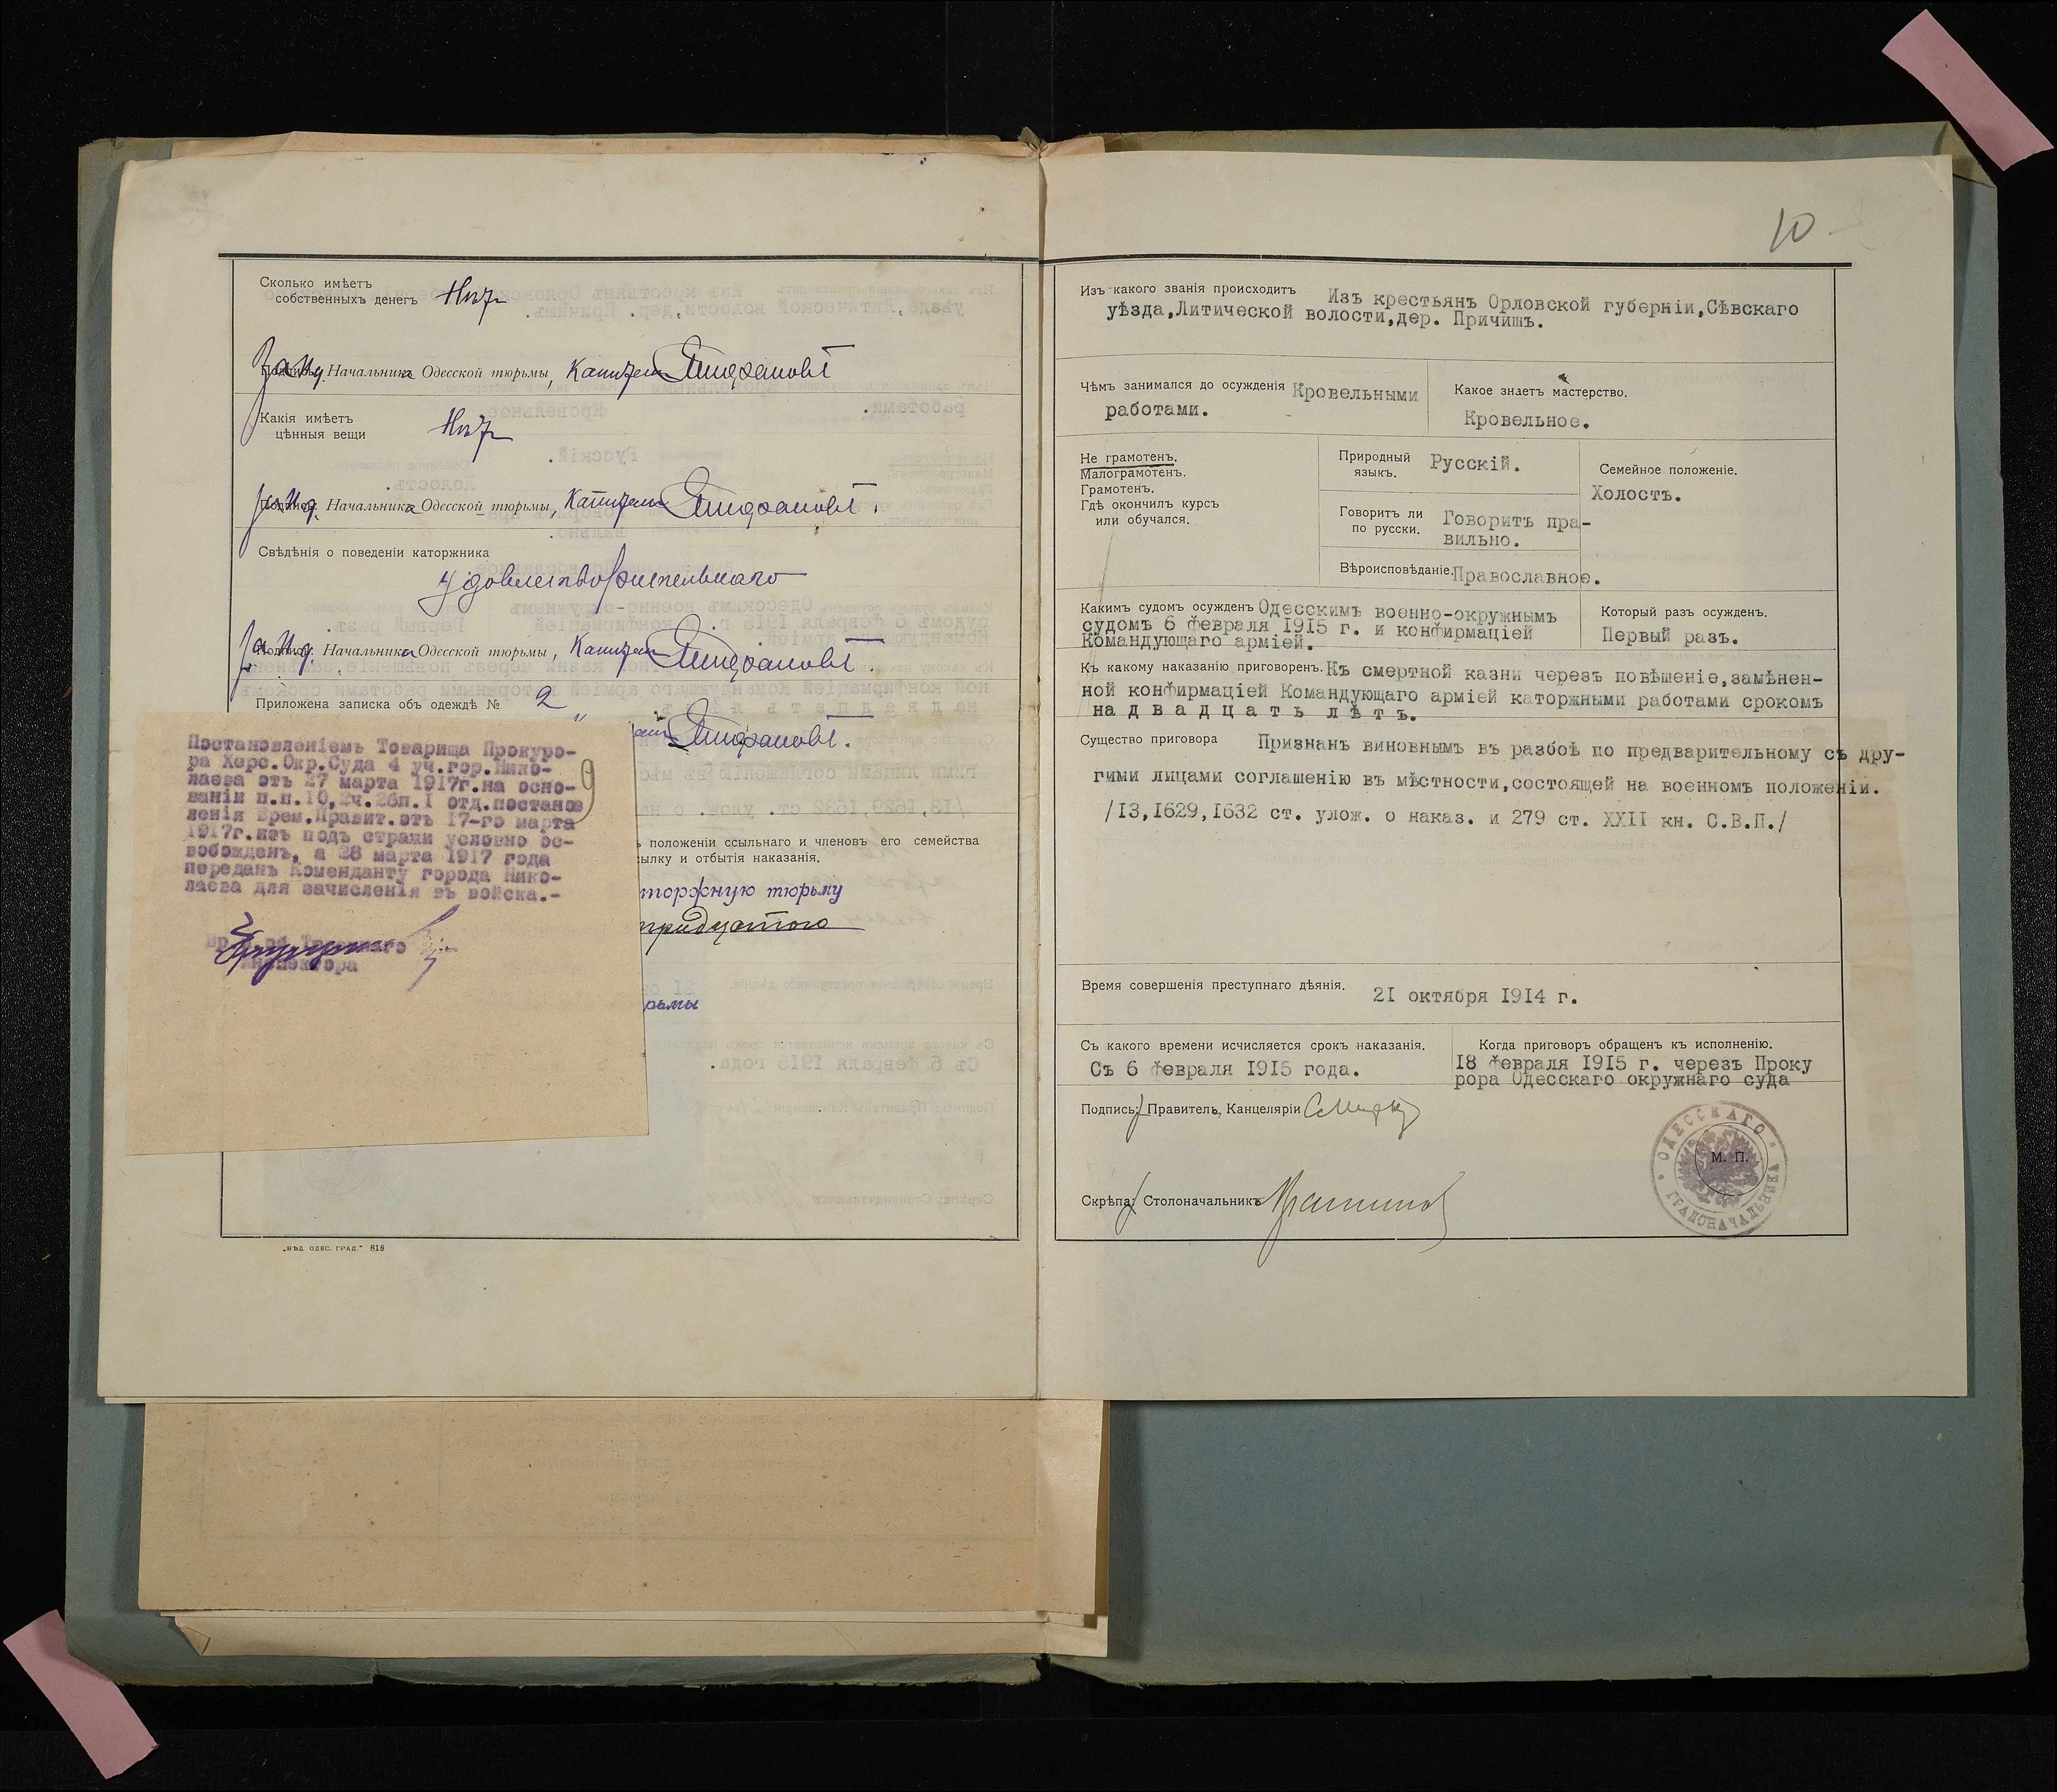 Сколько имѣетъ
собственныхъ денегъ Нѣтъ
За Нач. Начальника Одесской тюрьмы, Капитанъ
Какія имѣетъ
цѣнныя вещи Нѣтъ
Начальника Одесской тюрьмы, Капитанъ
Свѣдѣнія о поведеніи каторжника
Удовлетворительнаго
Начальника Одесской тюрьмы, Капитанъ
Приложена записка объ одеждѣ № 2
Постановленіемъ Товарища Прокуро-
ра Херс.Окр.Суда 4 уч.гор.Нико-
лаева отъ 27 марта 1917г.на осно-
ваніи п.п.10,2ч.2бп.I отд.постанов
ленія Врем.Правит.отъ 17-го марта
1917г.изъ подъ стражи условно ос-
вобожденъ, а 28 марта 1917 года
переданъ Коменданту города Нико-
лаева для зачисленія въ войска.-
инспектора
9
положеніи ссыльнаго и членовъ его семейства
сылку и отбытія наказанія.
торжную тюрьму
тридцатого
рьмы
„ВѢД. ОДЕС. ГРАД.“ 818
10
Изъ какого званія происходитъ Изъ крестьянъ Орловской губерніи,Сѣвскаго
уѣзда,Литической волости,дер. Причишъ.
Чѣмъ занимался до осужденія Кровельными
работами.
Какое знаетъ мастерство.
Кровельное.
Не грамотенъ.
Малограмотенъ.
Грамотенъ.
Гдѣ окончилъ курсъ
или обучался.
Природный
языкъ. Русскій.
Говоритъ ли
по русски. Говоритъ пра-
вильно.
Вѣроисповѣданіе. Православное.
Семейное положеніе.
Холостъ.
Какимъ судомъ осужденъ Одесскимъ военно-окружнымъ
судомъ 6 февраля 1915 г. и конфирмаціей
Командующаго арміей.
Который разъ осужденъ.
Первый разъ.
Къ какому наказанію приговоренъ. Къ смертной казни черезъ повѣшеніе,замѣнен-
ной конфирмаціей Командующаго арміей каторжными работами срокомъ
на д в а д ц а т ь л ѣ т ъ.
Существо приговора Признанъ виновнымъ въ разбоѣ по предварительному съ дру-
гими лицами соглашенію въ мѣстности,состоящей на военномъ положеніи.
/13,1629,1632 ст. улож. о наказ. и 279 ст. XXII кн. С.В.П./
Время совершенія преступнаго дѣянія. 21 октября 1914 г.
Съ какого времени исчисляется срокъ наказанія.
Съ 6 февраля 1915 года.
Когда приговоръ обращенъ къ исполненію.
18 февраля 1915 г. черезъ Проку
рора Одесскаго окружнаго суда
Подпись: Правитель Канцеляріи
Скрѣпа: Столоначальникъ
ОДЕССКАГО ГРАДОНАЧАЛЬНИКА
М. П.